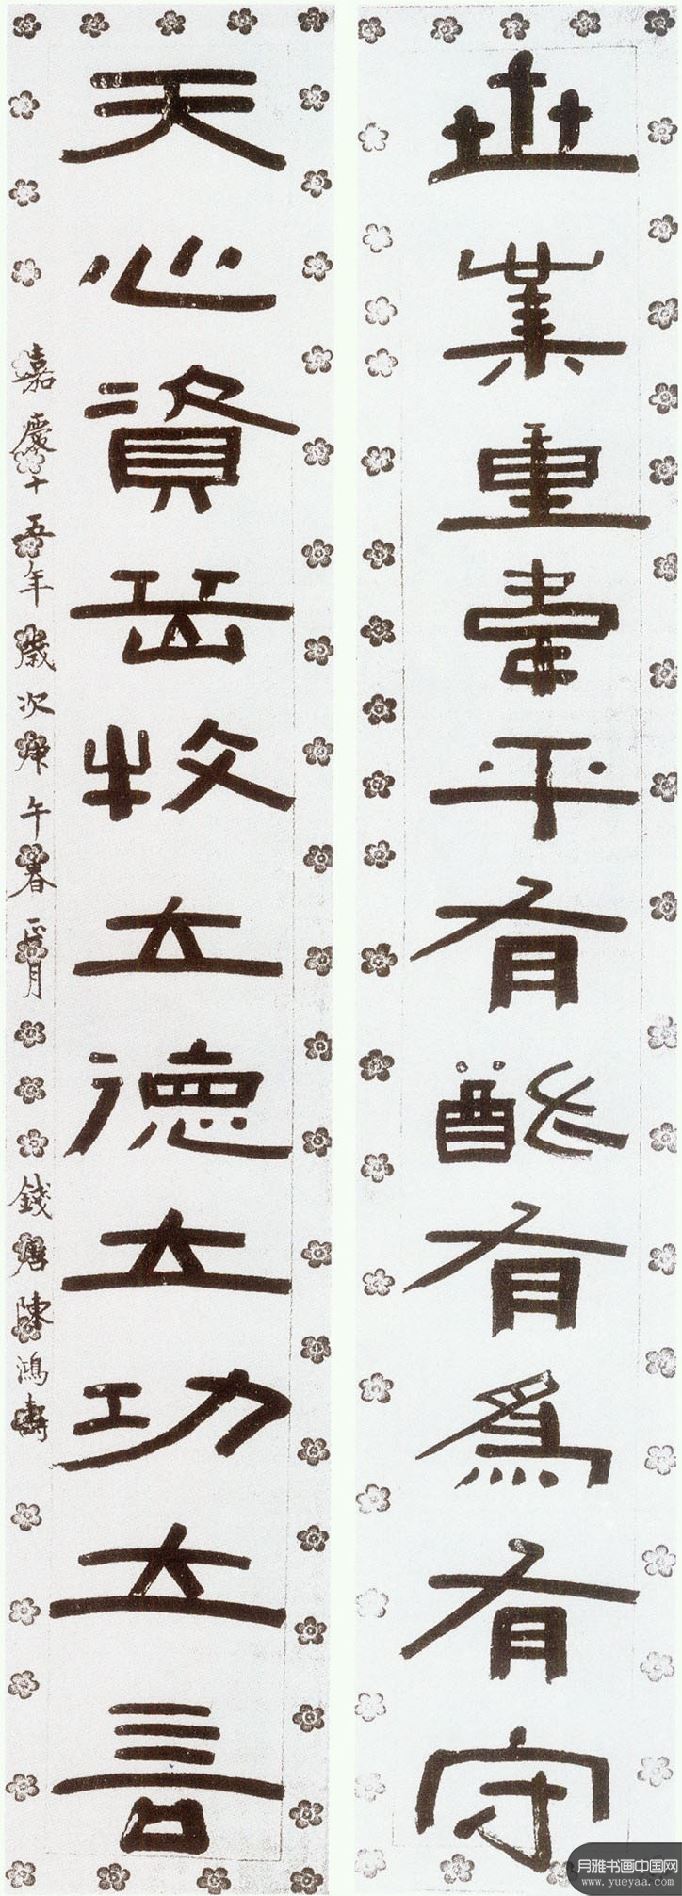 世業重韋平有猷有爲有守
天心資岳牧立德立功立言
嘉慶十五年歲次庚午春正月 錢唐陳鴻壽
月雅书画中国网
www.yueyaa.com